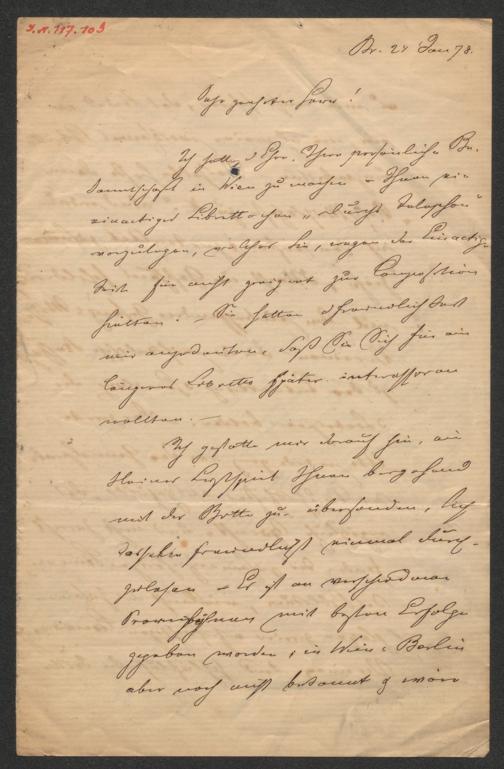 I.N. 117.103
Br. 24 Jan 78.
Sehr geehrter Herr!
Ich hatte d Ehre, Ihre persönliche Be-
kanntschaft in Wien zu machen u Ihnen ein
einactiges Librettochen „Durchs Telephon“
vorzulegen, welches Sie, wegen der Einactig-
keit für nicht geeignet zur Composition
hielten. – Sie hatten d Freundlichkeit
mir anzudeuten, daß Sie Sich für ein
längeres Libretto später interessiren
wollten. –
Ich gestatte mir darauf hin, ein
kleines Lustspiel Ihnen beigehend
mit der Bitte zu übersenden,
dasselbe freundlichst einmal durch-
zulesen – Es ist an verschiedenen
Provinzbühnen mit bestem Erfolge
gegeben worden, in Wien u Berlin
aber noch nicht bekannt u wäre